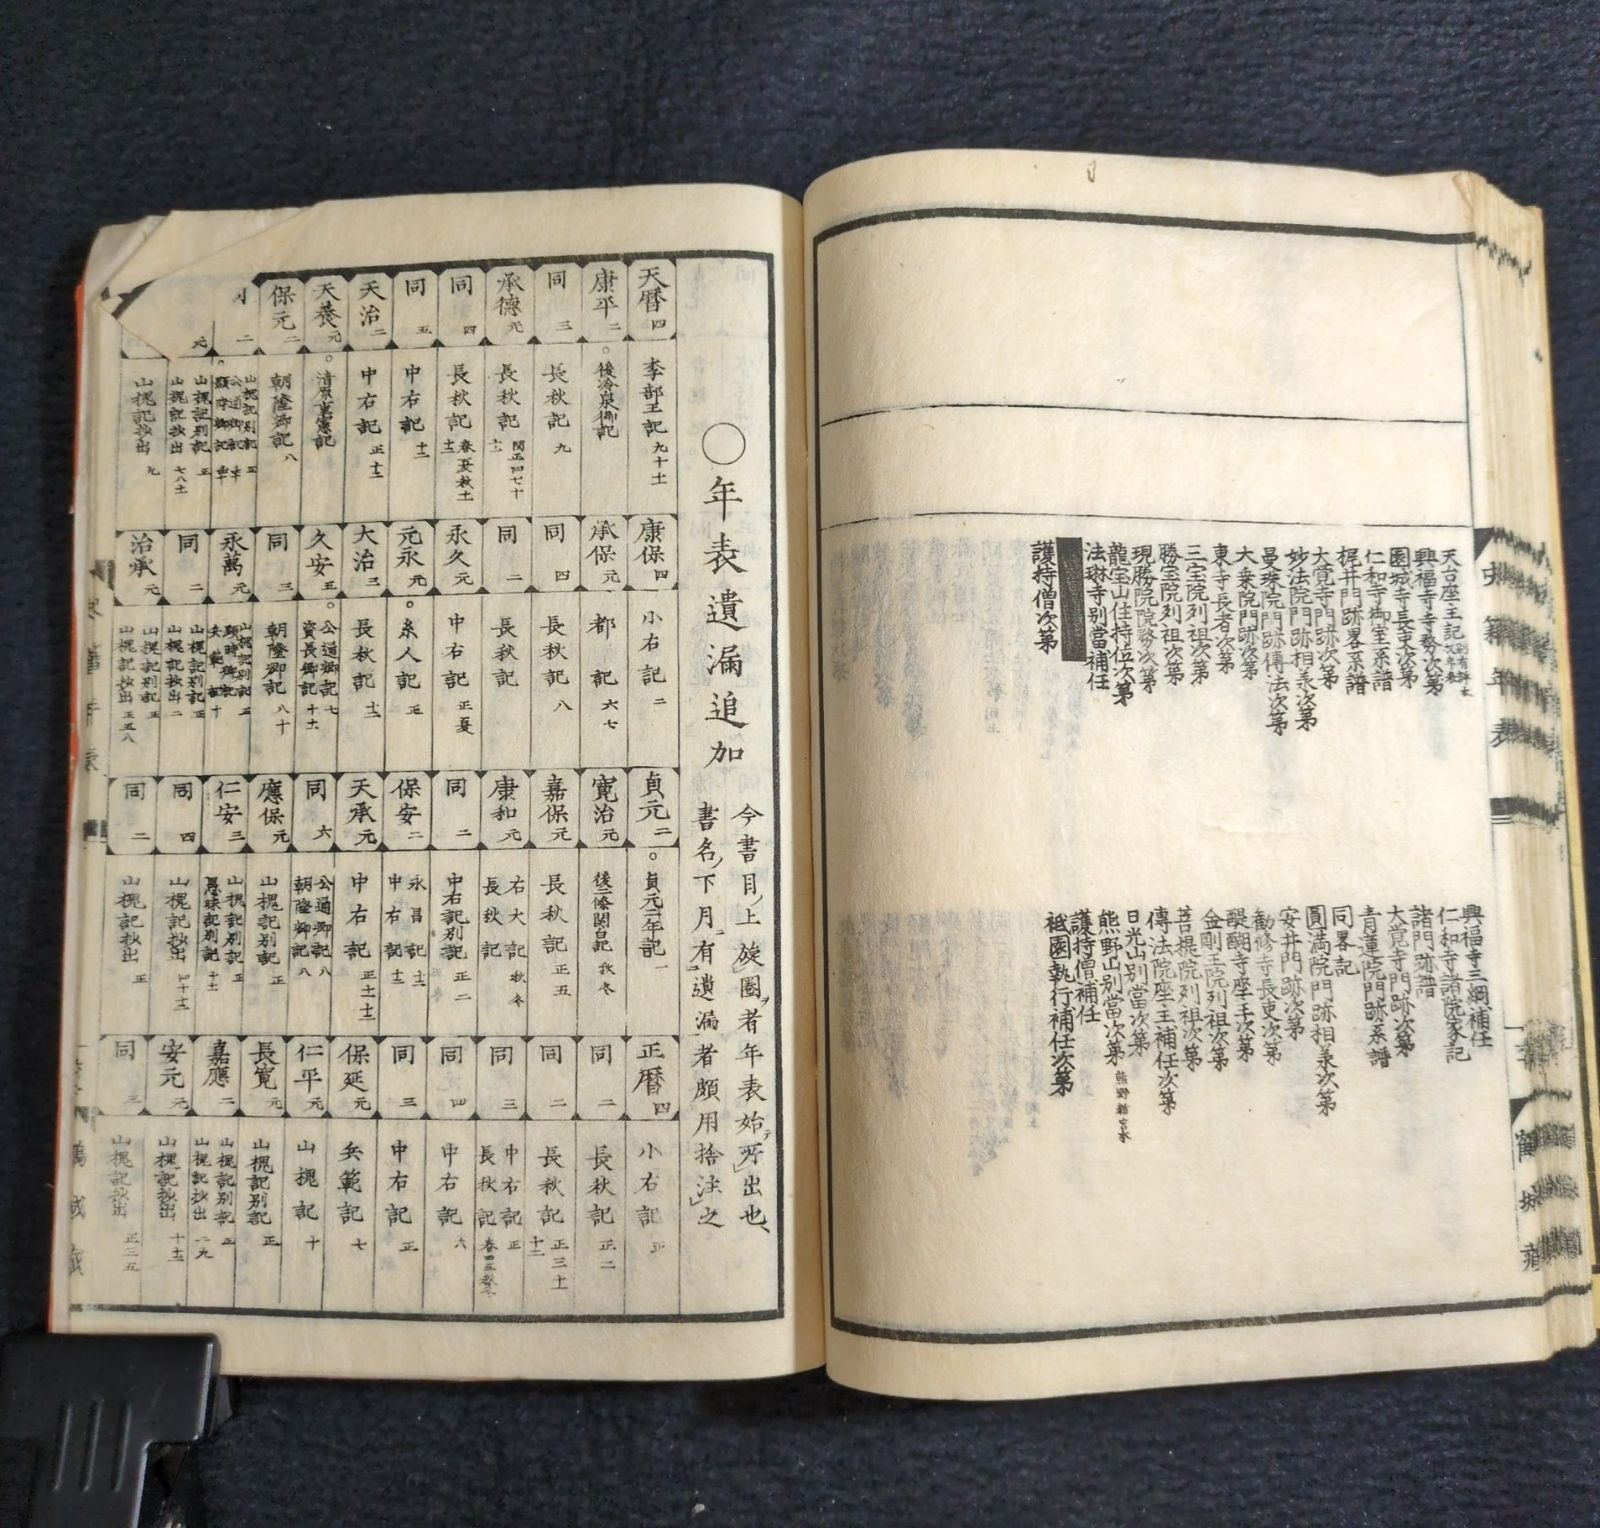 天台座主記
興福寺寺務次第
園城寺長吏次第
仁和寺御室系譜
梶井門跡畧系譜
大覚寺門跡次第
妙法院門跡相羕次第
曼珠院門跡傳法次第
大乗院門跡次第
東寺長者次第
三宝院列祖次第
勝宝院列祖次第
現勝院院務次第
龍宝山住持位次第
法琳寺別當補任
護持僧次第
興福寺三綱補任
仁和寺諸院家記
諸門跡譜
大覚寺門跡次第
青蓮院門跡系譜
同畧記
圓満院門跡相羕次第
安井門跡次第
勧修寺長吏次第
醍醐寺座主次第
金剛王院列祖次第
菩提院列祖次第
傳法院座主補任次第
日光山別當次第
熊野山別當次第
護持僧補任
祗園執行補任次第
史籍年表
〇年表遺漏追加
今書目ノ上旋圏ヲ者年表始テ所出也、
書名ノ下月有遺漏者頗用捨注之
天暦 四
李部王記 九十十一
康平 二
〇後冷泉御記
同 三
長秋記 九
承德 元
長秋記 閏正四七十十一
同 四
長秋記 春夏秋十一十二
同 五
中右記 十二
天治 二
中右記 正十二
天養 元
〇清原重憲記
保元 二
朝隆卿記 八
二
山槐記別記 五
元
山槐記別記 正
山槐記抄出 七八十一
山槐記抄出 九
康保 四
小右記 二
承保 元
都記 六七
同 四
長秋記 八
同 二
長秋記
永久 元
中右記 正夏
元永 元
〇糸人記 元
大治 三
長秋記 十二
久安 五
〇公通卿記 七
資長卿記 十十一
同 三
朝隆卿記 八十
永萬 元
山槐記別記 五
顕時卿記 十
兵範記
同 二
山槐記別記 正
山槐記抄出 二
治承 元
山槐記別記 正
山槐記抄出 正五八
貞元 二
〇貞元二年記 一
寛治 元
後二條関白記 秋冬
嘉保 元
長秋記 正五
康和 元
右大記 秋冬
長秋記
同 二
中右記別記 正二
保安 二
永昌記 十一
中右記 十二
天承 元
中右記 正十一十二
同 六
公通卿記 八
朝隆卿記 八
應保 元
山槐記別記 正
仁安 三
山槐記別記 正
愚昧記別記 十十一
同 四
山槐記抄出 四十十二
同 二
山槐記抄出 正
正暦 四
小右記 正
同 二
長秋記 正二
同 二
長秋記 正三十十二
同 三
中右記 正
長秋記
同 四
中右記 六
同 三
中右記 正
保延 元
兵範記 七
仁平 元
山槐記 十
長寛 元
山槐記別記 正
嘉應 二
山槐記別記 正
山槐記抄出 一九
安元 元
山槐記抄出 十十二
同 三
山槐記抄出 正三五